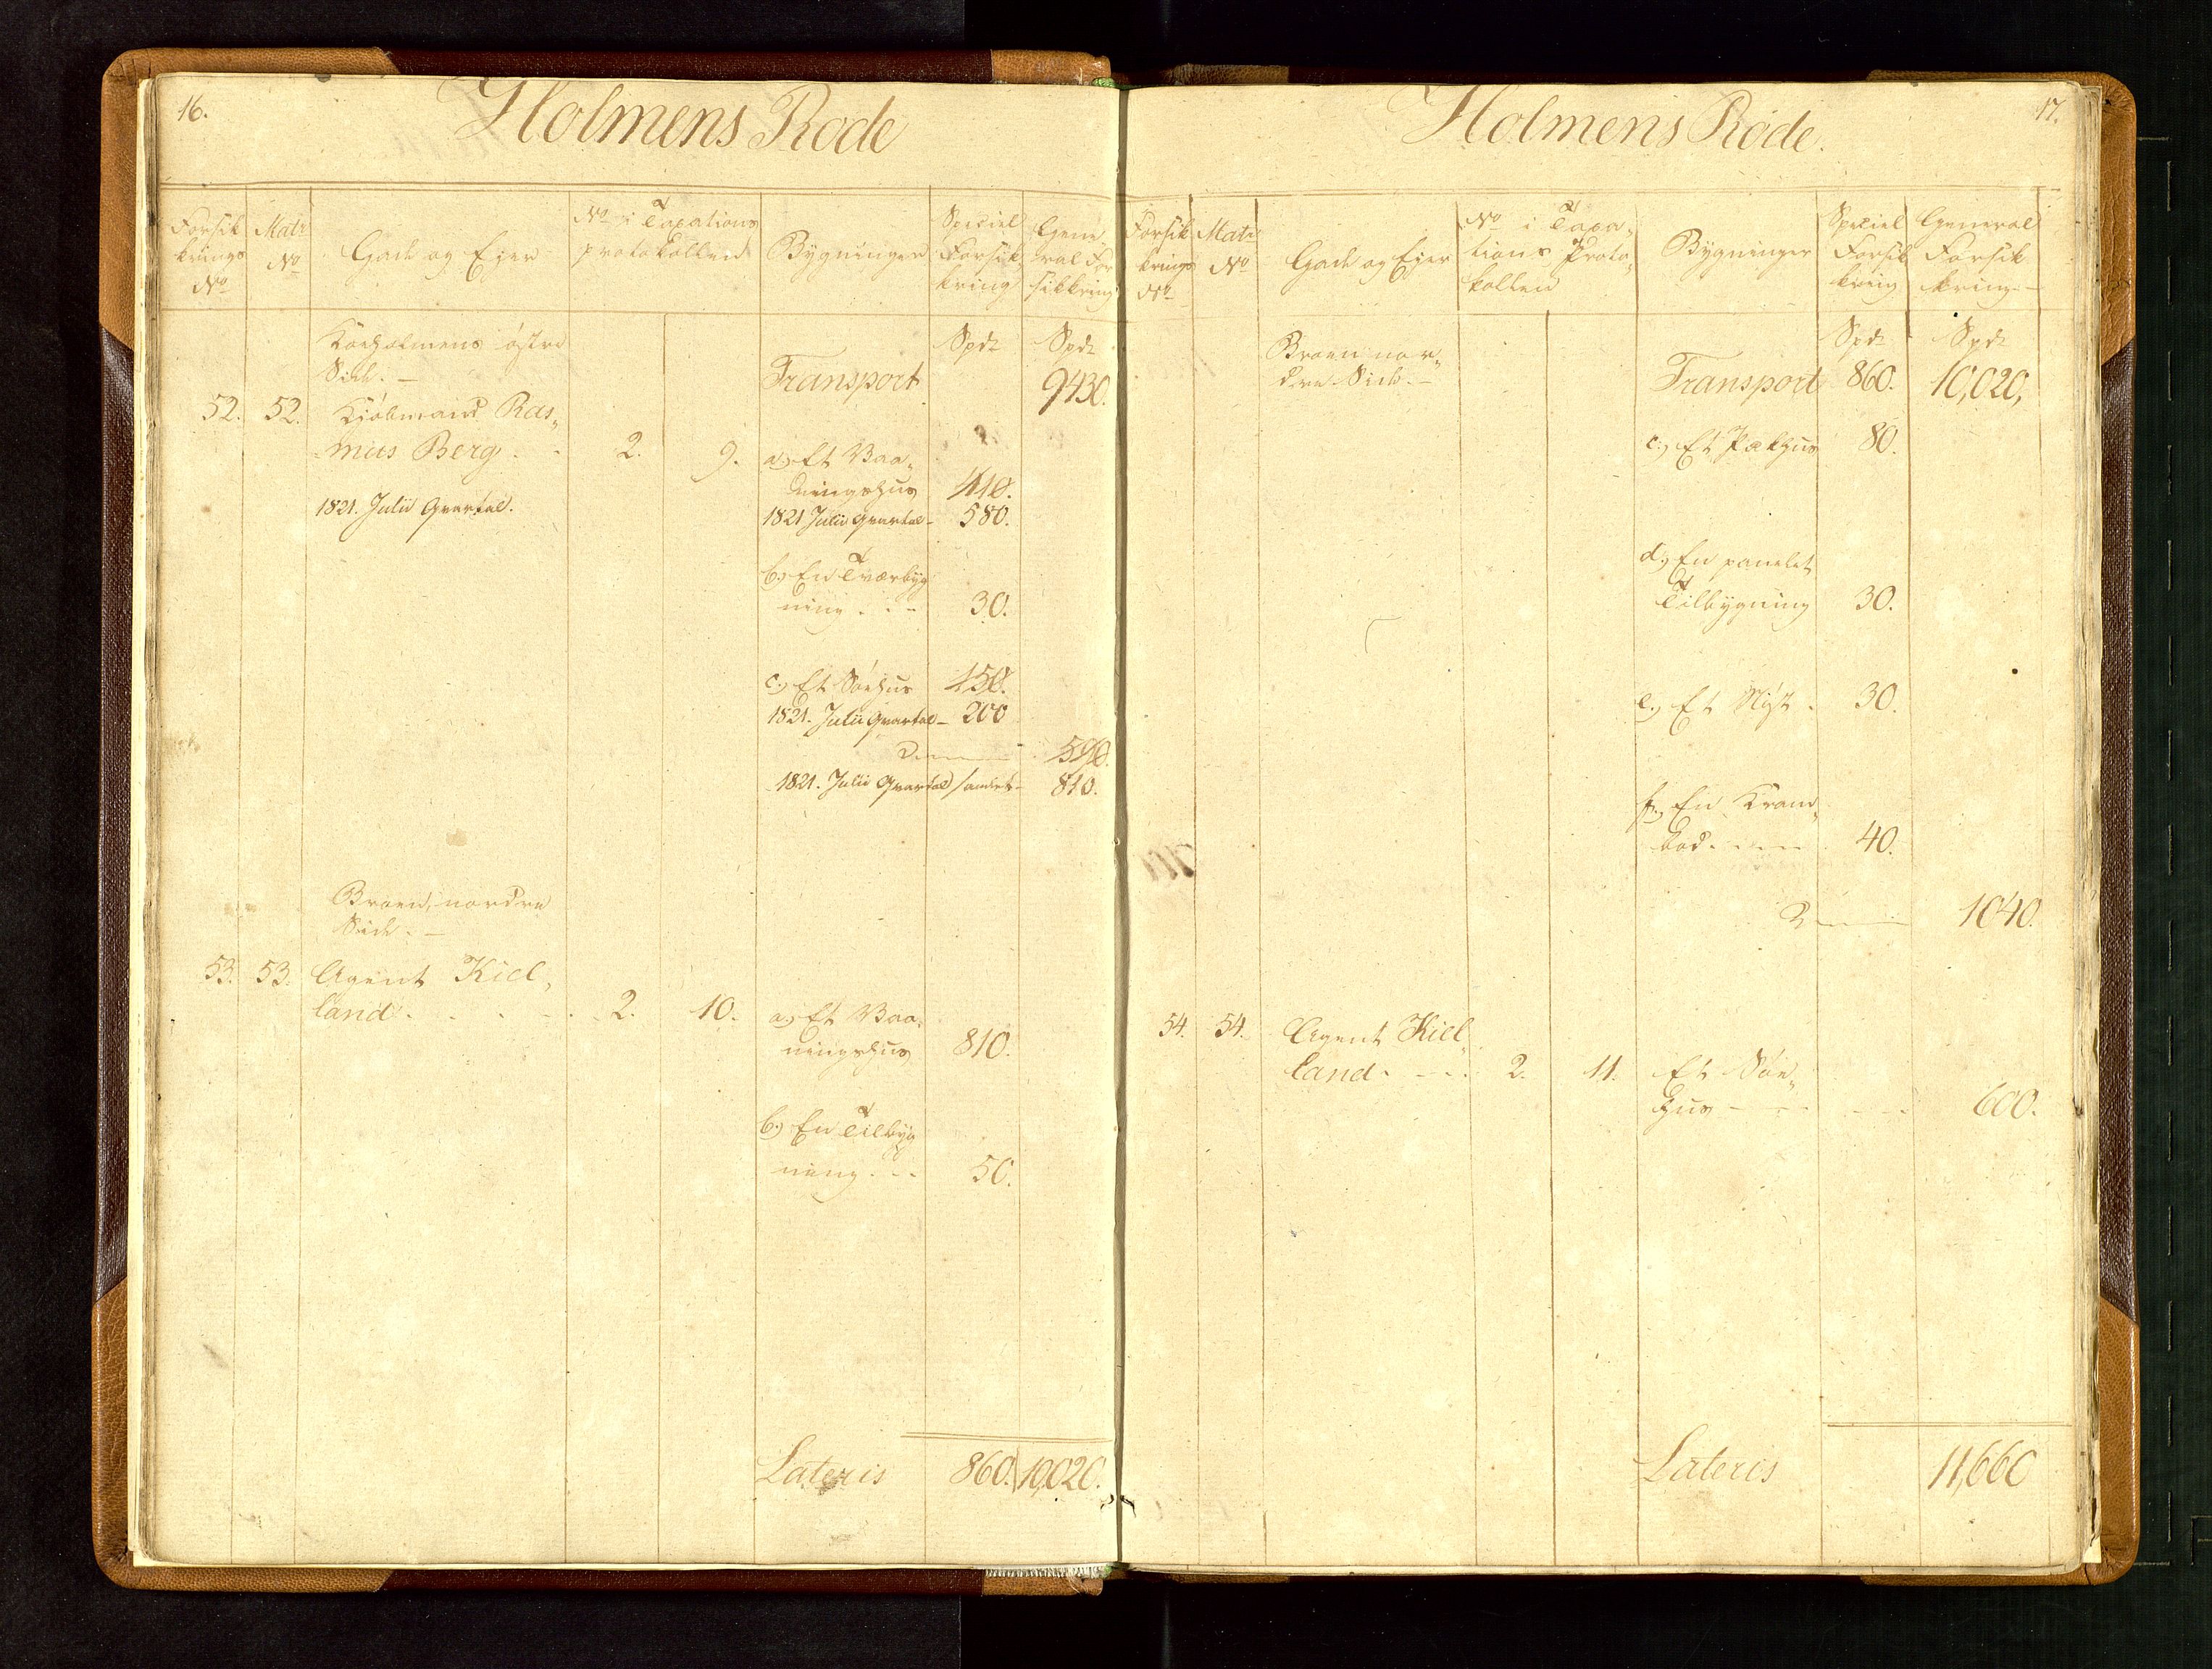 16.
Holmens Rode
Forsik
krings
No
Matr
No
Gade og Ejer
No i Taxations
protokollen
Bygninger
Speciel
Forsik-
kring
Gene-
ral For
sikkring
Spdr
Spdr
Søeholmens østre
Side. —
Transport
9430.
52. 52. Kiøbmand Ras„
mus Berg. - 2. 9. a.) Et Vaa„
ningshus 410.
1821. Julii Qvartal. 1821 Julii Qvartal - 580.
b.) En Tværbyg
ning . . - 30.
c.) Et Søehus 150.
1821. Julii Qvartal - 200
590.
1821. Julii Qvartal samlet - 810.
Broens nordre
Side. —
53. 53. Agent Kiel„
land . . . - . . 2. 10. a.) Et Vaa„
ningshus 810.
b.) En Tilbyg
ning . - - 50.
Lateris 860. 10,020.
17.
Holmens Rode.
Forsik
krings
No
Matr
No
Gade og Ejer
No i Taxa„
tions Proto„
kollen
Bygninger
Speciel
Forsik
kring
General
Forsik
kring -
Spdr
Spdr
Broens nor„
dre Side. —
Transport 860. 10,020,
c.) Et Pakhus 80.
d.) En panelet
Tilbygning 30.
e.) Et Nøst . 30.
f.) En Kram„
bod . - - - 40.
1040.
54. 54. Agent Kiel„
land . - - . 2. 11. Et Søe„
hus - - - - - - 600.
Lateris 11,660